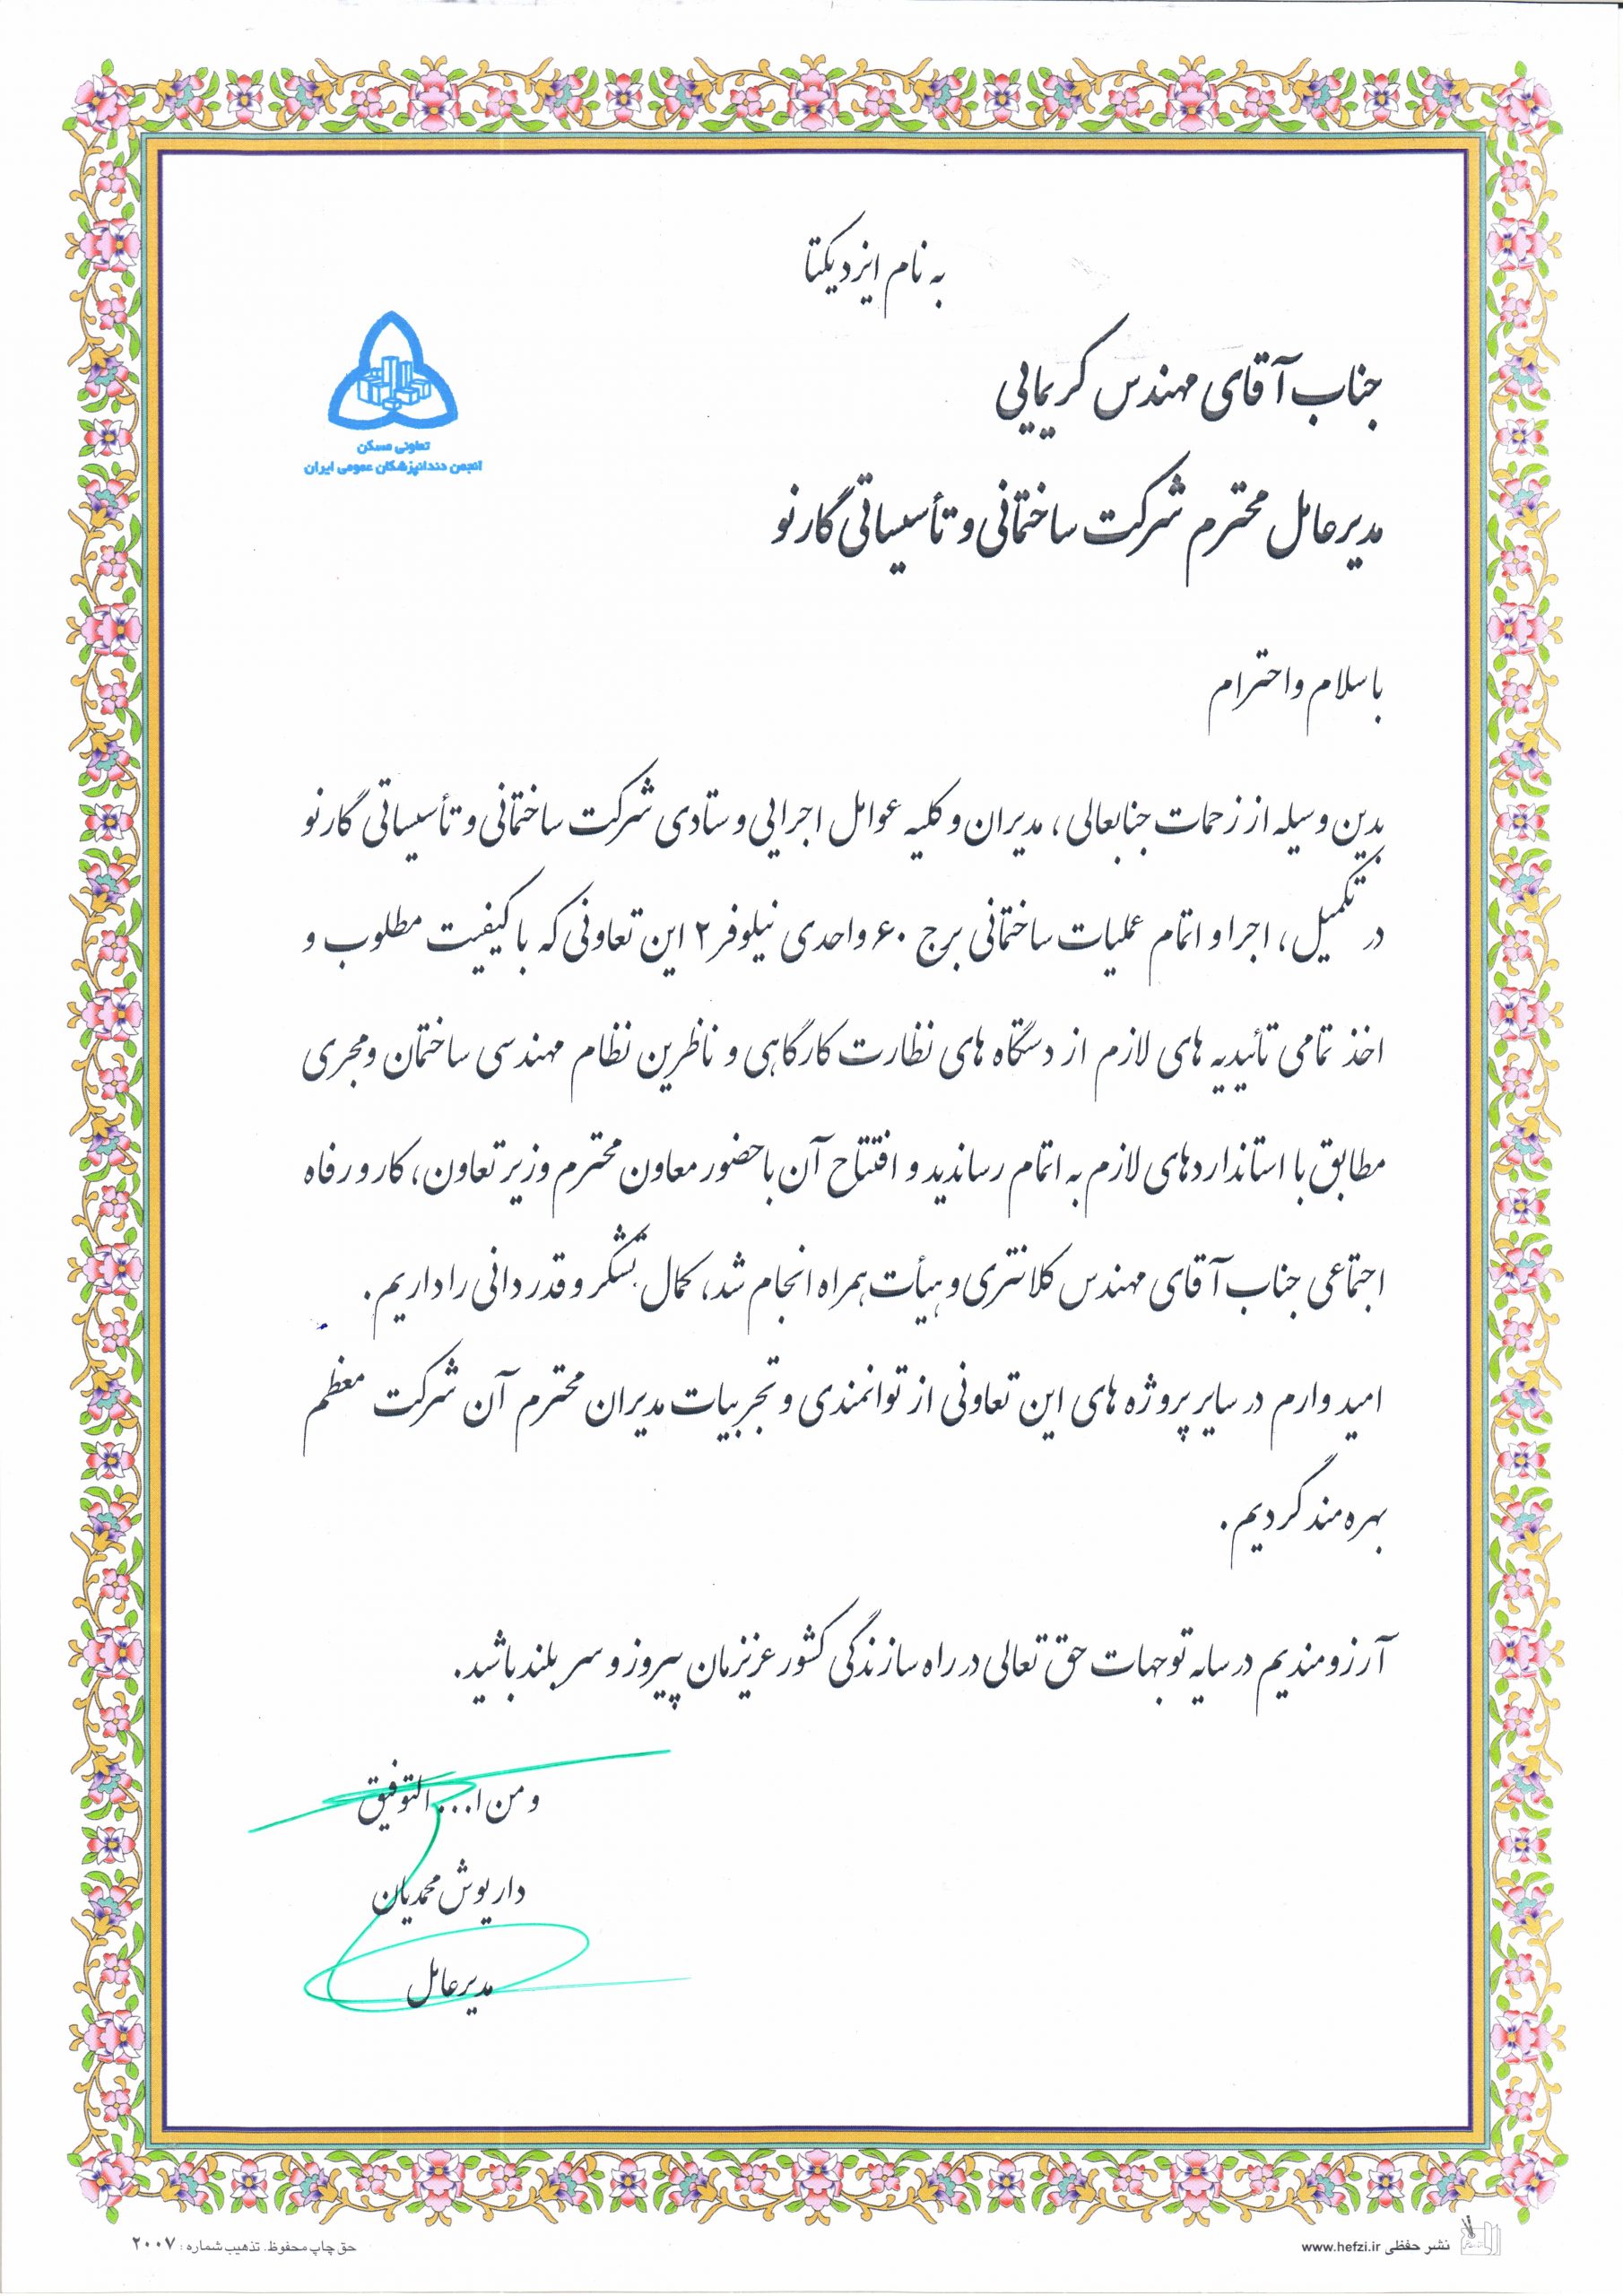 به نام ایزد یکتا
تعاونی مسکن
انجمن دندانپزشکان عمومی ایران
جناب آقای مهندس کریمایی
مدیرعامل محترم شرکت ساختمانی و تأسیساتی گارنو
با سلام و احترام
بدین وسیله از زحمات جنابعالی، مدیران و کلیه عوامل اجرایی و ستادی شرکت ساختمانی و تأسیساتی گارنو
در تکمیل، اجرا و اتمام عملیات ساختمانی برج ۶۰ واحدی نیلوفر ۲ این تعاونی که با کیفیت مطلوب و
اخذ تمامی تأییدیه های لازم از دستگاه های نظارت کارگاهی و ناظرین نظام مهندسی ساختمان و مجری
مطابق با استانداردهای لازم به اتمام رساندید و افتتاح آن با حضور معاون محترم وزیر تعاون، کار و رفاه
اجتماعی جناب آقای مهندس کلانتری و هیأت همراه انجام شد، کمال تشکر و قدردانی را داریم.
امید وارم در سایر پروژه های این تعاونی از توانمندی و تجربیات مدیران محترم آن شرکت معظم
بهره مند گردیم.
آرزومندیم در سایه توجهات حق تعالی در راه سازندگی کشور عزیزمان پیروز و سر بلند باشید.
و من ا... التوفیق
داریوش محمدیان
مدیرعامل
نشر حفظی www.hefzi.ir
حق چاپ محفوظ. تذهیب شماره: ۲۰۰۷